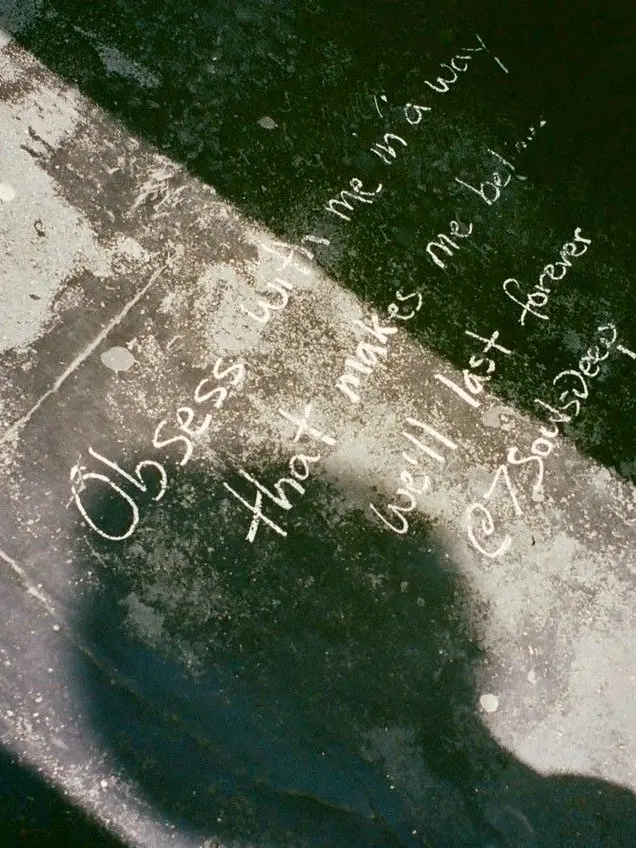 Obsess with me in a way
that makes me bel...
we'll last forever
@7SoulsDeep